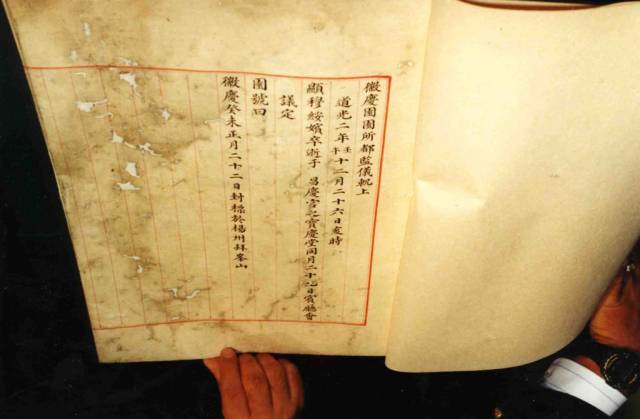 徽慶園園所都監儀軌上
道光二年壬午十二月二十六日時
顯穆綏嬪卒逝于 昌慶宮之寶慶堂同月二十九日賓廳會
議定
園號曰
徽慶癸未正月二十二日封標於楊州拜峯山